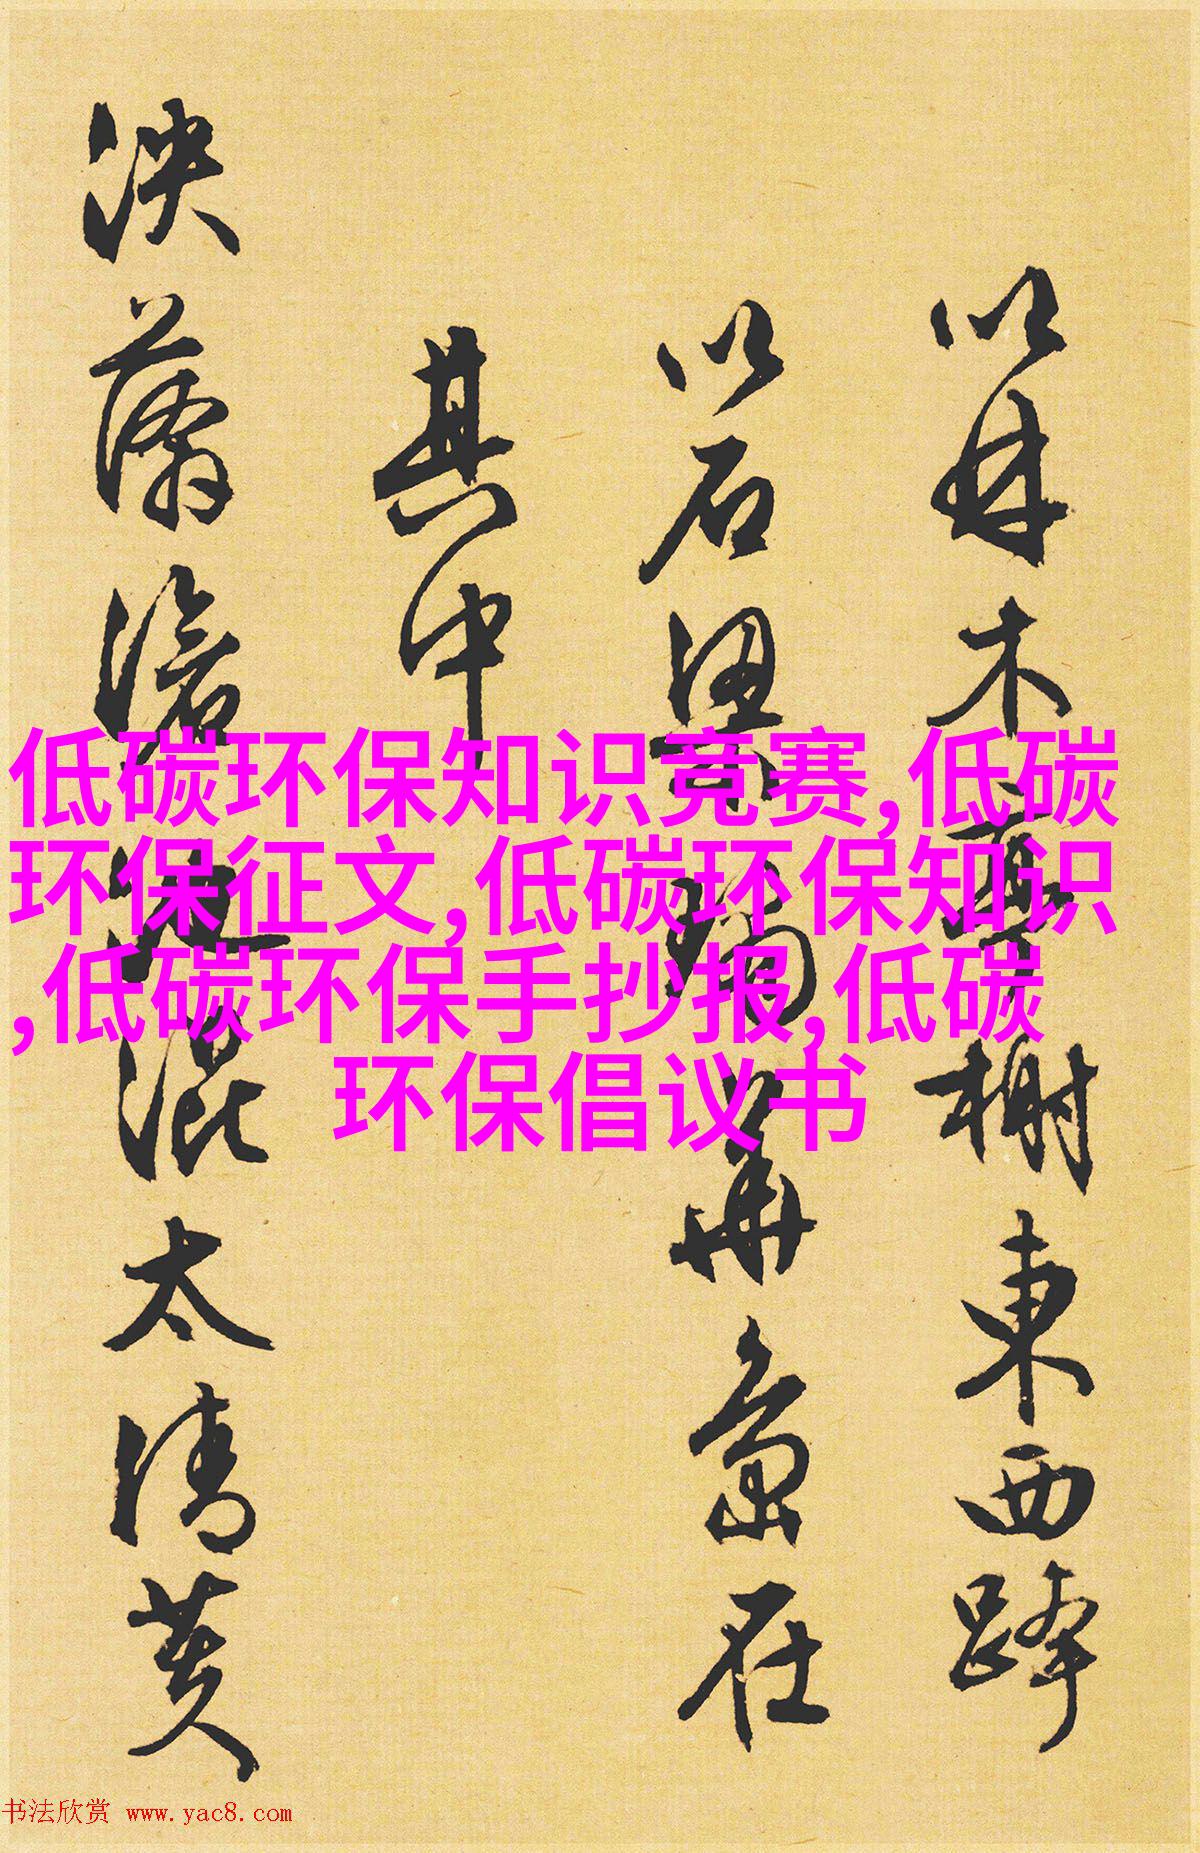 以林木榭東西
以石梁瑞華島在
其中
泱澹混太清黄
低碳环保知识竞赛,低碳
环保征文,低碳环保知识
,低碳环保手抄报,低碳
环保倡议书
书法欣赏 www.yac8.com